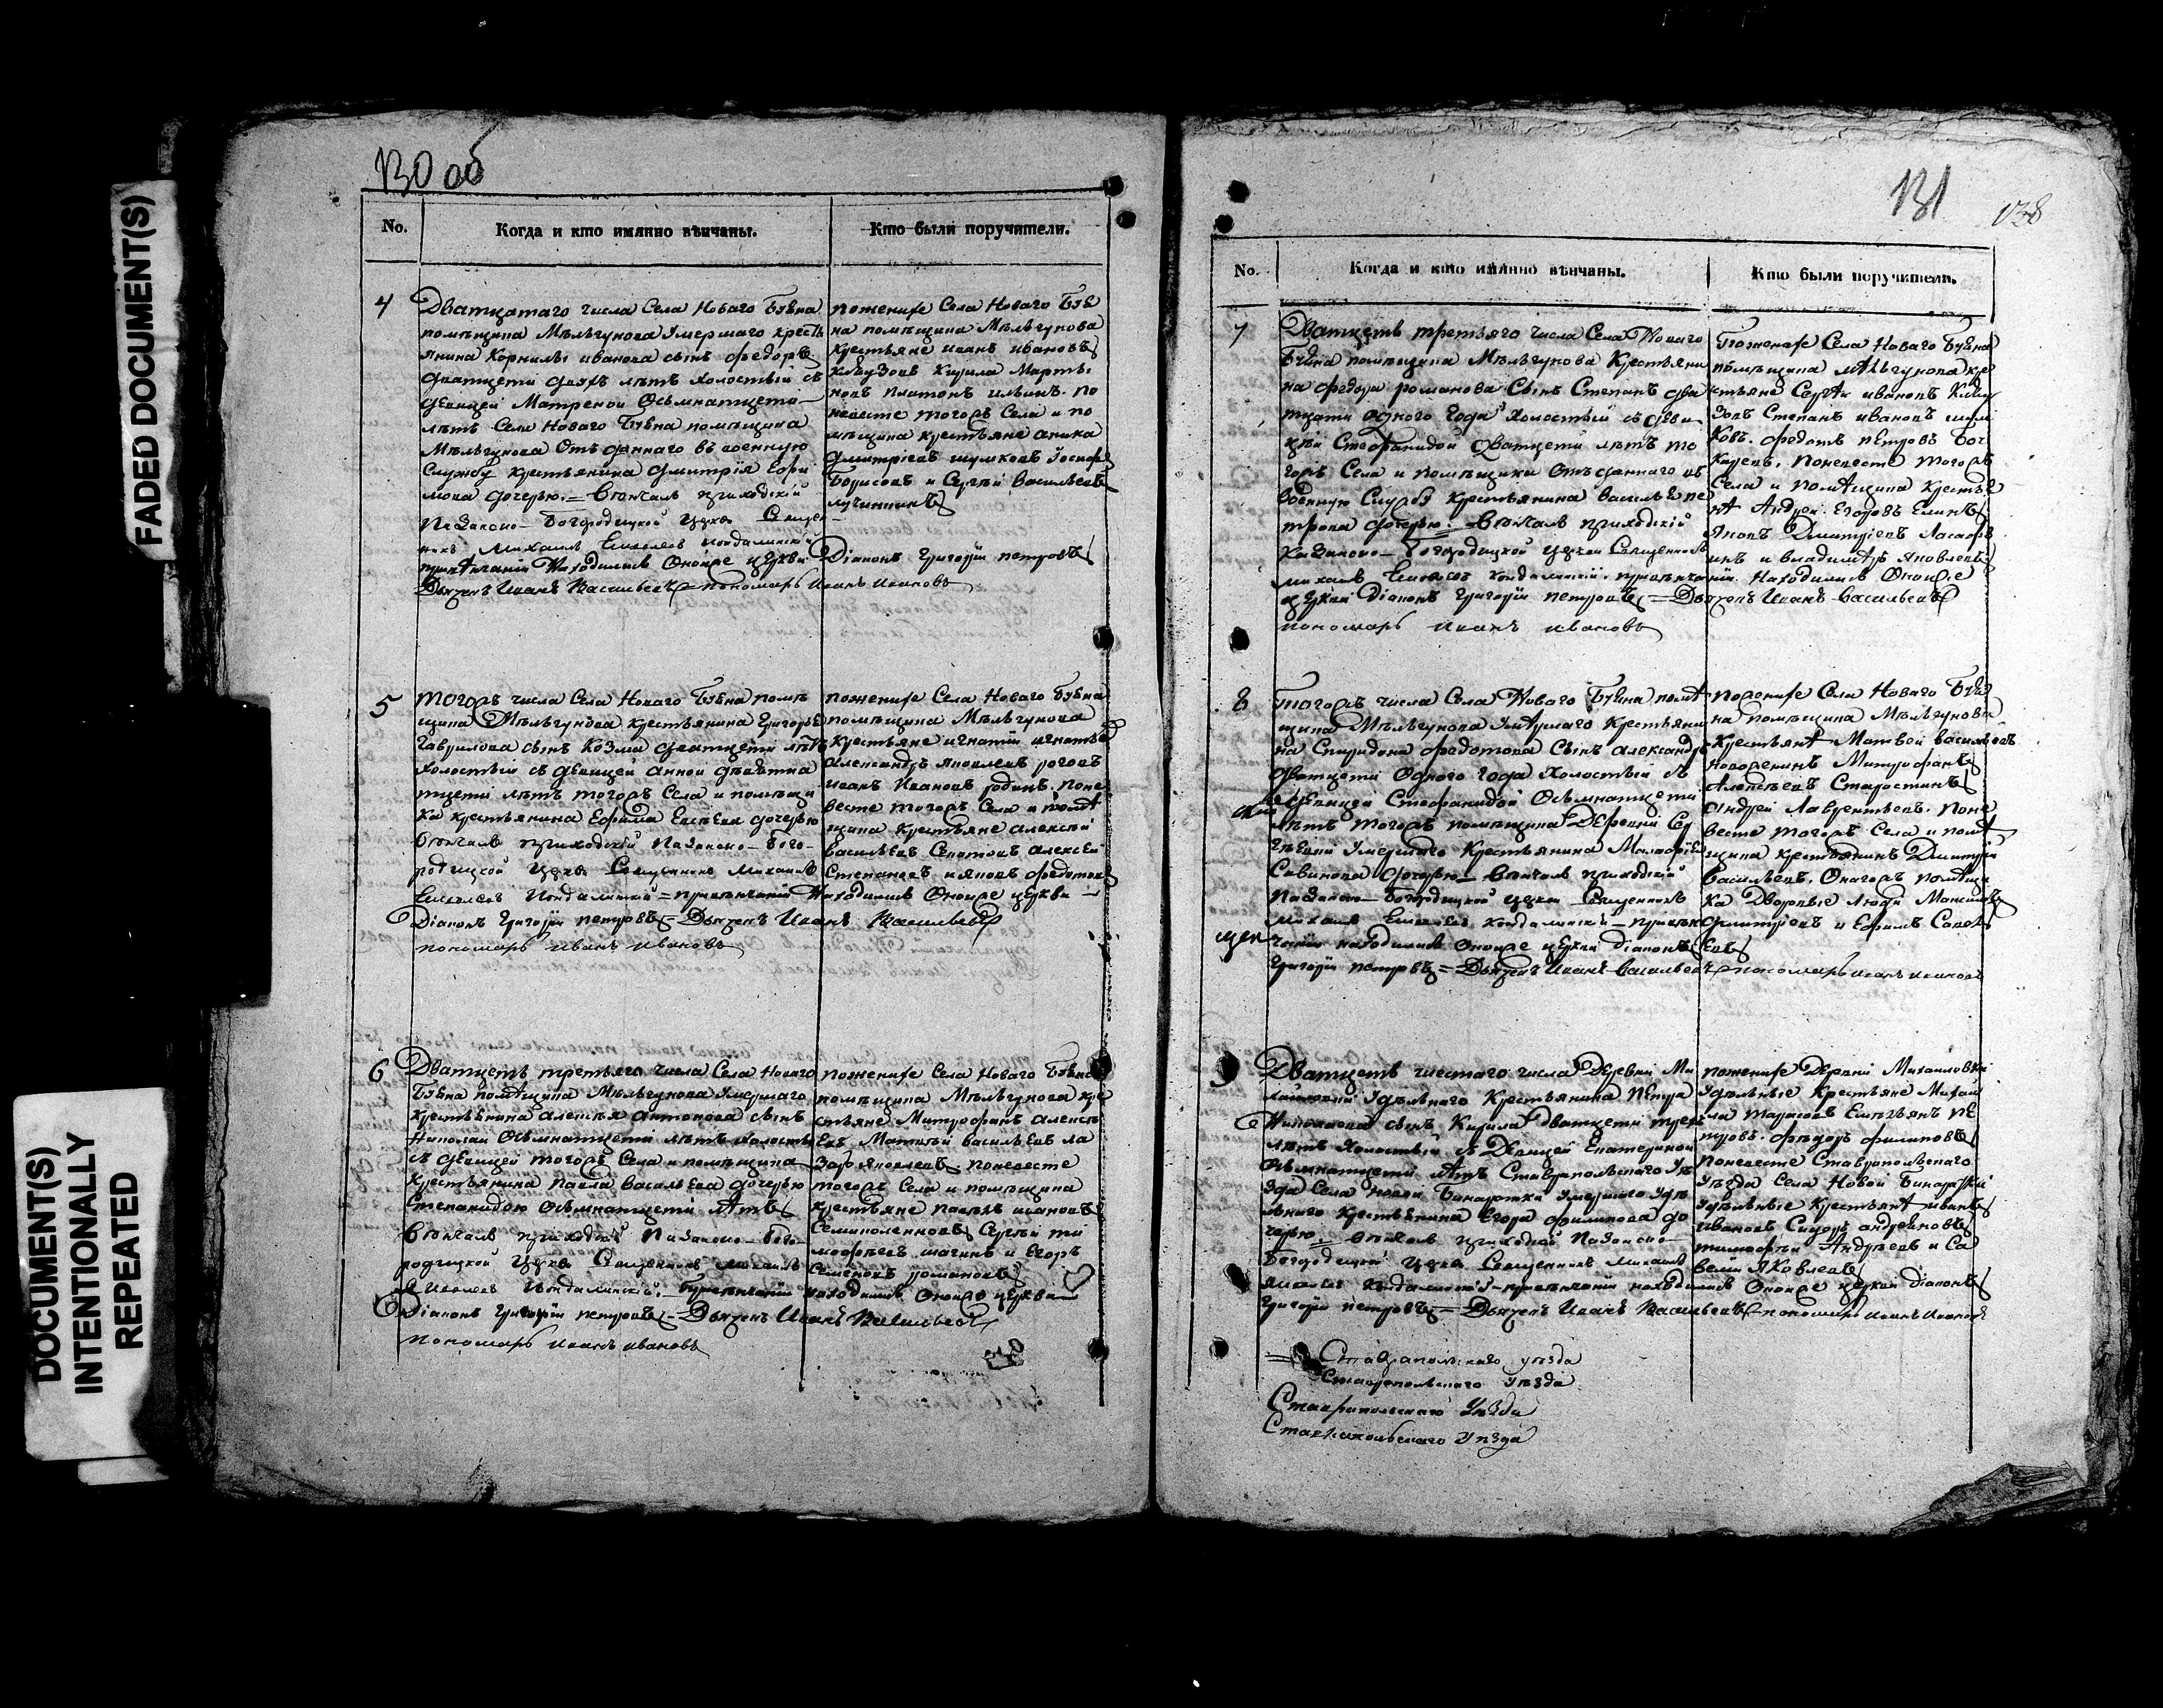 FADED DOCUMENT(S)
DOCUMENT(S)
INTENTIONALLY
REPEATED
130 об
No.
Когда и кто имянно вѣнчаны.
Кто были поручители.
4
Дватцатаго числа Села Новаго Буяна
помѣщика Мѣльгунова Умершаго кресть
янина Корнилы иванова сынъ федоръ
дватцети двухъ лѣтъ холостый съ
девицей Матреной Осьмнатцети
лѣтъ Села Новаго Буяна помѣщика
Мѣльгунова Отъданнаго въ военную
Службу крестьянина Дмитрія Ефи
мова дочерью = Венчалъ приходскій
Казанско-Богородицкой церкви Священ
никъ Михаилъ
привѣнчаніи Находились Оной же церкви Діаконъ Григорій петровъ
Дьячекъ Иванъ Васильевъ пономарь Иванъ Ивановъ
поженихе Села Новаго Буя
на помѣщика Мѣльгунова
Крестьяне иванъ ивановъ
Кирила Марты
новъ Платонъ ильинъ. по
невесте тогожъ Села и по
мѣщика крестьяне аника
Дмитріевъ шумковъ Іосифъ
Борисовъ и Сергѣй Васильевъ
лучинкинъ
5
тогожъ числа Села Новаго Буяна помѣ
щика Мѣльгунова крестьянина Григорья
Гаврилова сынъ Козма дватцети лѣтъ
холостый съ девицей анной девятна
тцети лѣтъ тогожъ Села и помѣщи
ка крестьянина Ефима Евсѣева дочерью
Венчалъ приходскій Казанско-Бого-
родицкой церкви Священникъ Михаилъ
= привѣнчаніи Находились Оной же церкви
Діаконъ Григорій петровъ = Дьячекъ Иванъ Васильевъ
пономарь Иванъ Ивановъ
поженихе Села Новаго Буяна
помѣщика Мѣльгунова
крестьяне игнатій игнатьев
александръ яковлевъ роговъ
иванъ Ивановъ родинъ. поне
весте тогожъ Села и помѣ
щика Крестьяне алексѣй
васильевъ алексей
Степановъ и яковъ федотовъ
6
Дватцеть третьяго числа Села Новаго
Буяна помѣщика Мѣльгунова Умершаго
Крестьянина алексѣя антонова сынъ
Николай Осьмнатцети лѣтъ холосты
съ девицей тогожъ Села и помѣщика
Крестьянина Павла Васильева дочерью
Степанидою Осьмнатцети лѣтъ
Венчалъ приходскій Казанско-Бого-
родицкой церкви Священникъ Михаилъ
привѣнчаніи находились Оной же церкви
Діаконъ Григорій петровъ = Дьячекъ Иванъ Васильевъ
пономарь Иванъ Ивановъ
поженихе Села Новаго Буяна
помѣщика Мѣльгунова кре
стьяне Митрофанъ алексѣ
евъ Матвѣй васильевъ ла
зарь яковлевъ поневесте
тогожъ Села и помѣщика
крестьяне павелъ ивановъ
Сергѣй ти
мофѣевъ шагинъ и Егоръ
Семеновъ романовъ
131
138
No.
Когда и кто имянно вѣнчаны.
Кто были поручители.
7
Дватцеть третьяго числа Села Новаго
Буяна помѣщика Мѣльгунова Крестьяни
на федора романова Сынъ Степанъ два
тцати одного года холостый съ деви
цей Стефанидой Дватцети лѣтъ то
гожъ Села и помѣщика Отъданнаго въ
военную Службу Крестьянина Василья пе
трова дочерью. = Венчалъ приходскій
Казанско-Богородицкой церкви Священникъ
Михаилъ привѣнчаніи Находились Оной же
церкви Діаконъ Григорій петровъ = Дьячекъ Иванъ Васильевъ
пономарь Иванъ Ивановъ
Поженихе Села Новаго Буяна
помѣщика Мѣльгунова кре
стьяне Сергѣй ивановъ
Степанъ ивановъ
федотъ петровъ
поневесте тогожъ
Села и помѣщика Крестья
нѣ Андрей Егоровъ
Яковъ Дмитріевъ
и владимѣръ Яковлевъ
8
тогожъ числа Села Новаго Буяна помѣ
щика Мѣльгунова Умѣршаго Крестьяни
на Спиридона федотова Сынъ александръ
дватцети Одного года холостый съ
девицей Стефанидой Осьмнатцети
лѣтъ тогожъ помѣщика Деревни
Умершаго Крестьянина
Савинова дочерью = Венчалъ приходскій
Казанско-Богородицкой церкви Священникъ
Михаилъ привѣн
чаніи находились Оной же церкви Діаконъ
Григорій петровъ = Дьячекъ Иванъ Васильевъ пономарь Иванъ Ивановъ
поженихе Села Новаго Буя
на помѣщика Мѣльгунова
Крестьянѣ Матвей васильевъ
Митрофанъ
Алексѣевъ Старостинъ
Андрей Лаврентьевъ. Поне
весте тогожъ Села и помѣ
щика крестьянинъ Дмитрій
Васильевъ. Онагожъ помѣщи
ка Дворовые люди Максимъ
Дмитріевъ и Ефимъ
9
Дватцеть шестаго числа Деревни Ми
хайловки Удѣльнаго Крестьянина Петра
Николаева сынъ Кирила Дватцети трехъ
лѣтъ Холостый съ Девицей Екатериной
Осьмнатцети лѣтъ Ставропольскаго Уѣ
зда Села Новой Бинарятки Умершаго Удѣ
льнаго Крестьянина Егора филипова до
черью. = Венчалъ приходскій Казанско
Богородицкой церкви Священникъ Михаилъ
привѣнчаніи находились Оной же церкви Діаконъ
Григорій петровъ = Дьячекъ Иванъ Васильевъ пономарь Иванъ Ивановъ
поженихе Деревни Михайловки
Удѣльные Крестьяне Михаи
ла тарасовъ Емельянъ пе
тровъ. фѣдоръ филиповъ
поневесте Ставропольскаго
Уѣзда Села Новой Бинарятки
Удѣльные Крестьянѣ иванъ
ивановъ Сидоръ андреяновъ
тимофѣй Андрѣевъ и Са
велий Яковлевъ
Ставропольскаго уѣзда
Ставропольскаго Уѣзда
Ставропольскаго Уѣзда
Ставропольскаго Уѣзда